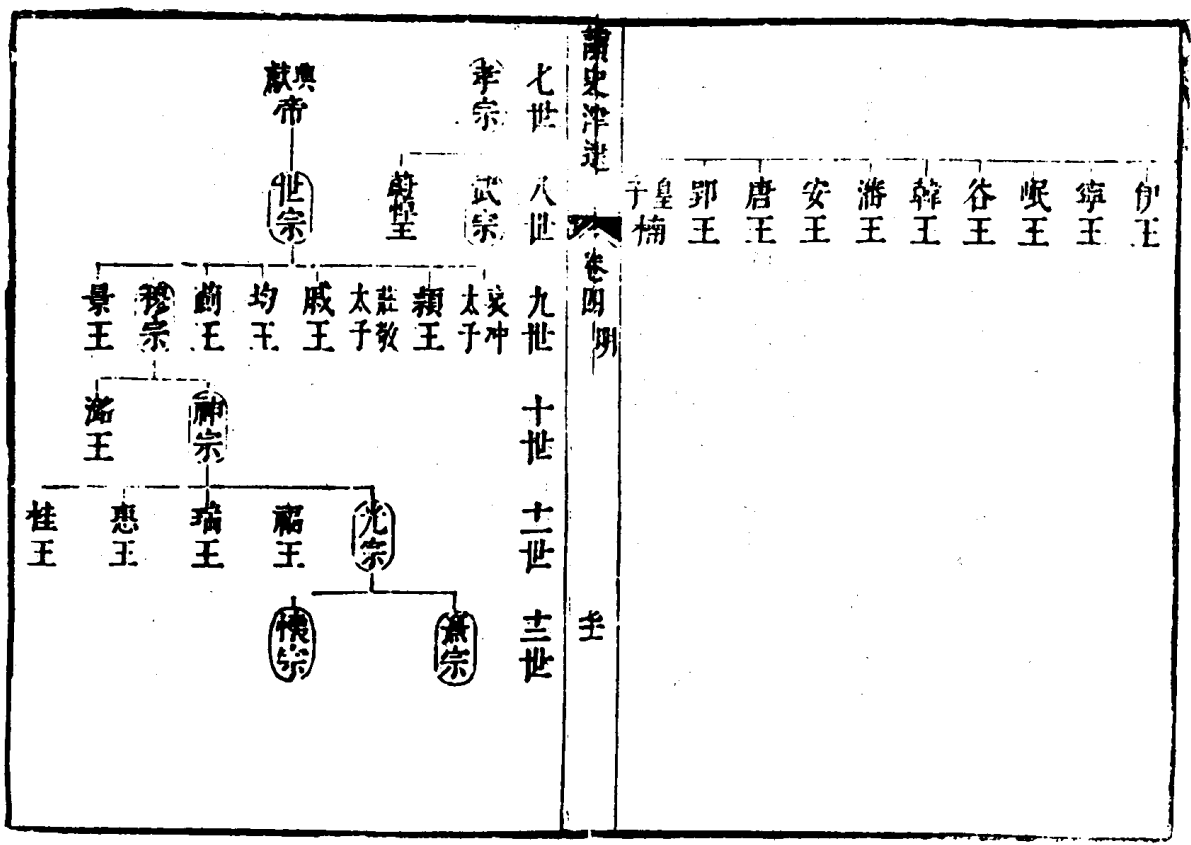 伊王
寧王
岷王
谷王
韓王
瀋王
安王
唐王
郢王
皇子楠
讀史津逮
卷四
明
七世
孝宗
興獻帝
八世
武宗
蔚悼王
世宗
九世
哀冲太子
穎王
莊敬太子
戚王
均王
薊王
穆宗
景王
十世
神宗
潞王
十一世
光宗
福王
瑞王
惠王
桂王
十二世
熹宗
懷宗